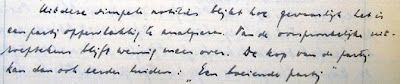 Uit deze simpele notities blijkt hoe gevaarlijk het is
een partij oppervlakkig te analyseren. Van de oorspronkelijke uit-
roeptekens blijft weinig meer over. De kop van de partij
kan dan ook eerder luiden: "Een boeiende partij"